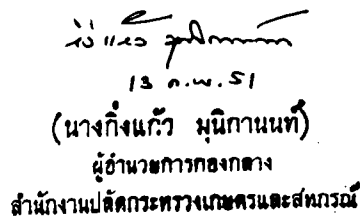 กิ่งแก้ว มุนิกานนท์
13 ก.พ. 51
(นางกิ่งแก้ว มุนิกานนท์)
ผู้อำนวยการกองกลาง
สำนักงานปลัดกระทรวงเกษตรและสหกรณ์